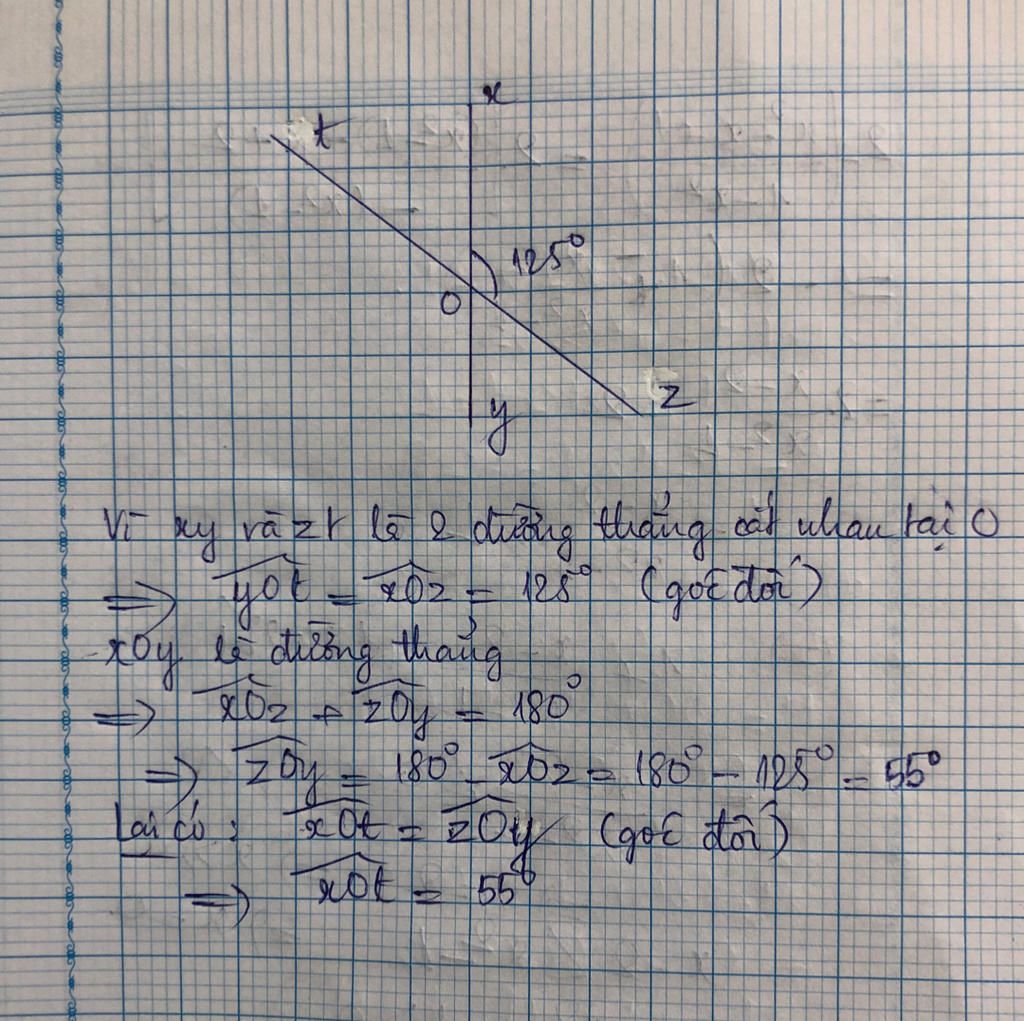 x
t
125°
O
z
y
Vì xy và zt là 2 đường thẳng cắt nhau tại O
=> yOt = xOz = 125° (góc đối)
xOy là đường thẳng
=> xOz + zOy = 180°
=> zOy = 180° - xOz = 180° - 125° = 55°
Lại có : xOt = zOy (góc đối)
=> xOt = 55°